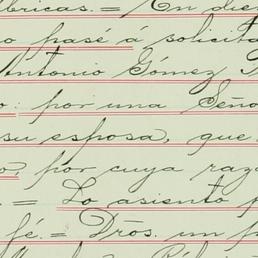 bricas. = En die
o pasé á solicita
Antonio Gómez
o: por una Seño
su esposa, que
o, por cuya raz
. = Lo asiento p
fé. = Dros. un p